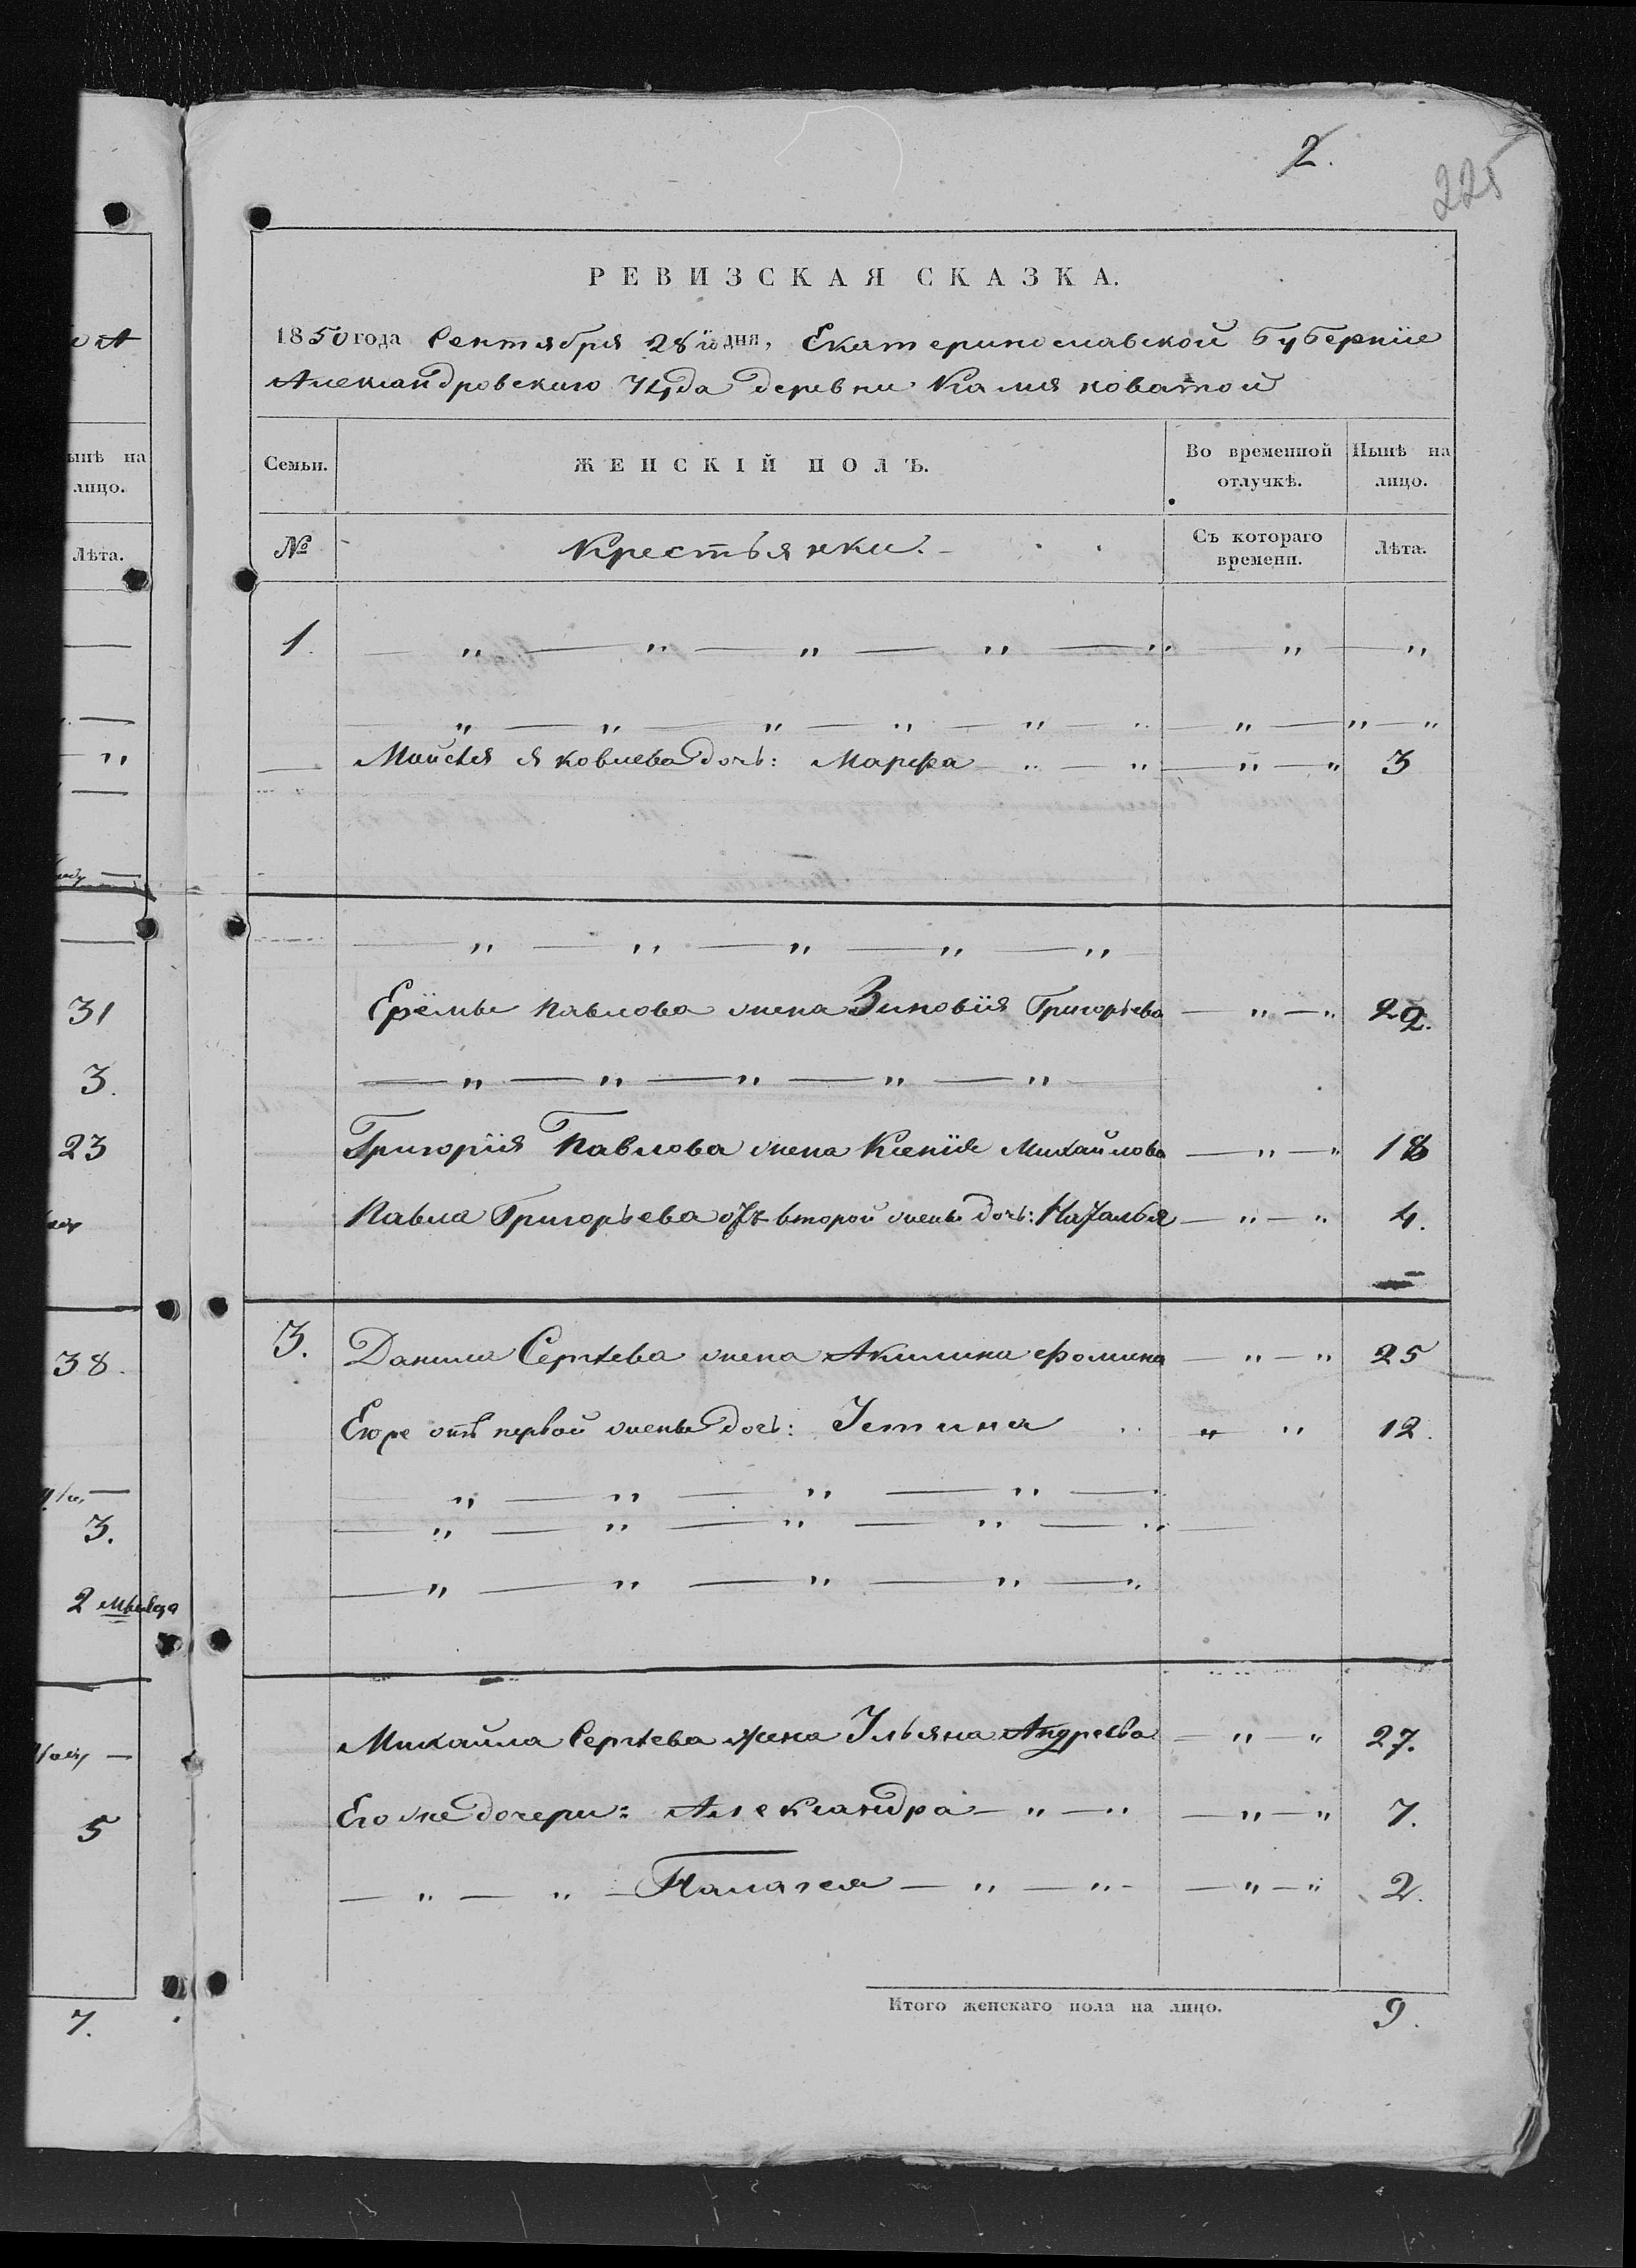 2.
225
РЕВИЗСКАЯ СКАЗКА.
1850 года Сентября 28 го дня, Екатеринославской Губернїи
Александровскаго Уѣзда деревни Камяноватой
Семьи. ЖЕНСКІЙ ПОЛЪ. Во временной отлучкѣ. Нынѣ на лицо.
№ Крестьянки. Съ котораго времени. Лѣта.
1. — „ — „ — „ — „ — „ — „ — „
— „ — „ — „ — „ — „ — „ — „ — „
— Мойсѣя Яковлева дочь: Марфа — „ — „ — „ — „ 3
— „ — „ — „ — „ — „
Ерёмы Павлова жена Зиновїя Григорьева — „ — „ 22.
— „ — „ — „ — „ — „
Григорїя Павлова жена Ксенїя Михайлова — „ — „ 18
Павла Григорьева отъ второй жены дочь: Наталья — „ — „ 4.
3. Данила Сергѣева жена Акилина Фомина — „ — „ 25
Егоже отъ первой жены дочь: Устина „ „ „ 12.
— „ — „ — „ — „ —
— „ — „ — „ — „ — „ —
— „ — „ — „ — „ — „
Михайла Сергѣева жена Ульяна Андреева — „ — „ 27.
Егоже дочери: Александра — „ — „ — „ — „ 7.
— „ — „ — Палагея — „ — „ — — „ — „ 2.
Итого женскаго пола на лицо. 9.
ынѣ на
лицо.
Лѣта.
31
3.
23
38.
3.
2 мѣсяца
5
7.